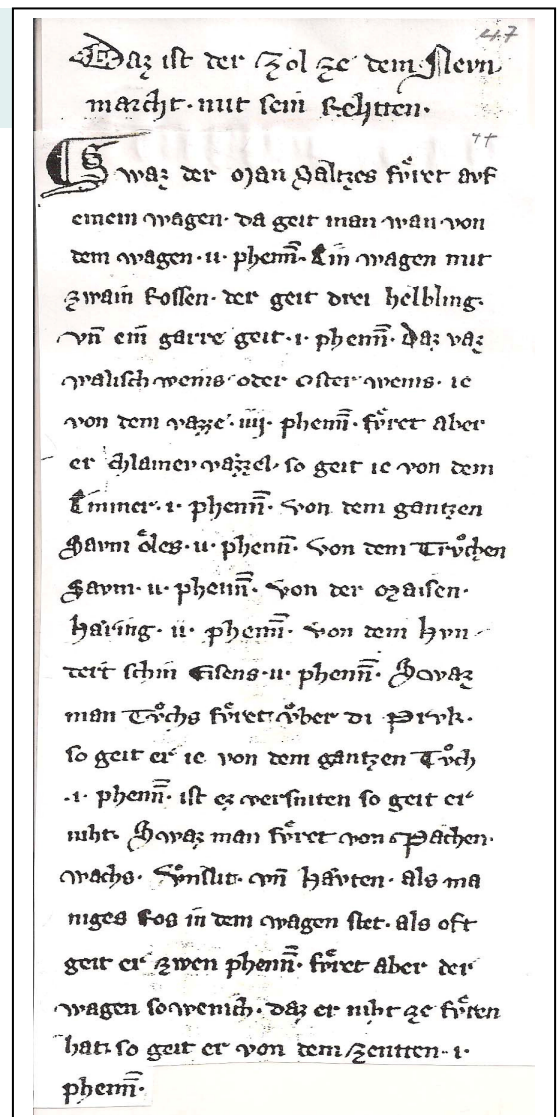 47
Daz ist der Zol ze dem Nevn
marcht · mit sein Rehtten ·
++
Swaz der man Saltzes fv̊ret avf
einem wagen · da geit man van von
dem wagen · ii · phenn̄ · Ein wagen mit
zwain Rossen · der geit drei helbling ·
vn̄ ein garre geit · i · phenn̄ · Daz vaz
walisch weins oder Oster weins · ie
von dem vazze · iiij · phenn̄ · fv̊ret aber
er chlainev vazzel · so geit ie von dem
Emmer · i · phenn̄ · von dem gantzen
Savm öles · ii · phenn̄ · von dem Trv̊chen
Savm · ii · phenn̄ · von der maisen ·
Haring · ii · phenn̄ · von dem Hvn
dert schin Eisens · ii · phenn̄ · Swaz
man Tv̊chs fv̊ret v̊ber di Prvk ·
so geit er ie von dem gantzen Tv̊ch
· i · phenn̄ · ist ez versniten so geit er
niht · Swaz man fv̊ret von Pachen ·
wachs · Vnslit · vn̄ Havten · als ma
niges Ros in dem wagen stet · als oft
geit er zwen phenn̄ · fv̊ret aber der
wagen so wenich · daz er niht ze fv̊ren
hat · so geit er von dem Zentten · i ·
phenn̄ ·